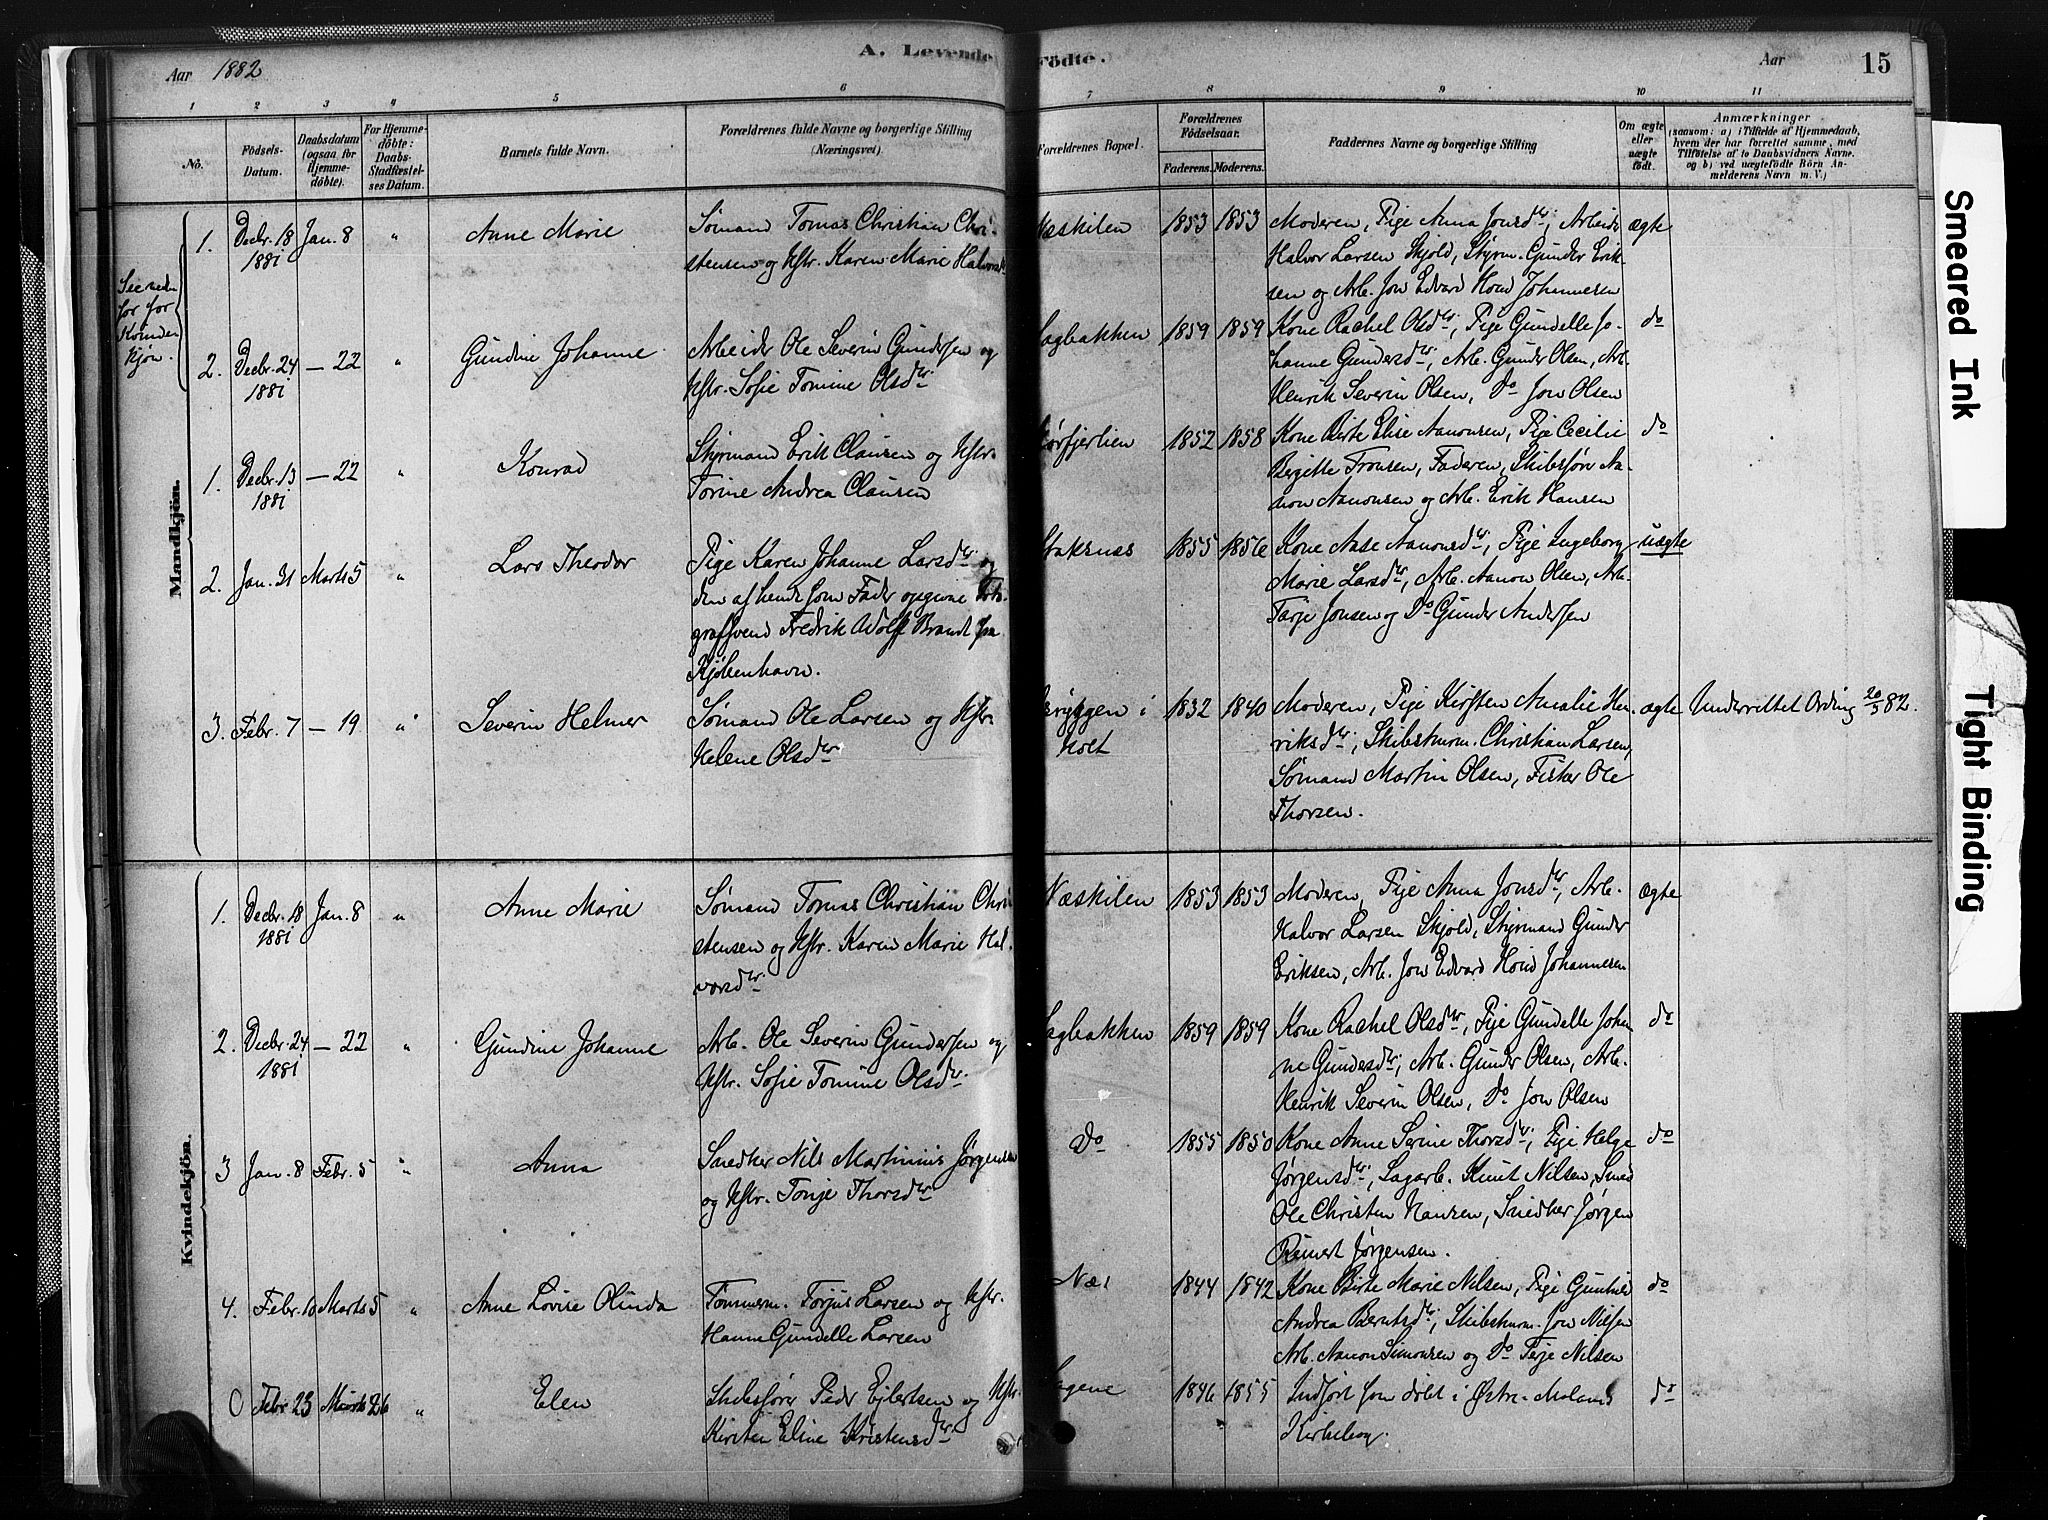 Aar 1882
A. Levende Födte.
Aar
15
1 2 3 4 5 6 7 8 9 10 11
No.
Födsels-Datum.
Daabsdatum (ogsaa for Hjemmedöbte).
For Hjemmedöbte: Daabs-Stadfæstelses Datum.
Barnets fulde Navn.
Forældrenes fulde Navne og borgerlige Stilling (Næringsvei).
Forældrenes Bopæl.
Forældrenes Födselsaar.
Faderens. Moderens.
Faddernes Navne og borgerlige Stilling
Om ægte eller uægte födt.
Anmærkninger
(saasom: a) i Tilfælde af Hjemmedaab, hvem der har forrettet samme, med Tilföielse af to Daabsvidners Navne. og b) ved uægtefödte Börn Anmelderens Navn m. V.)
Mandkjön.
See neden
for for
Kvinden
kjøn.
1. Decbr. 18 Jan. 8 " Anne Marie Sømand Tomas Christian Chri- Næskilen 1853 1853 Moderen, Pige Anna Jonsdtr, Arbeider ægte
1881 stensen og Hstr. Karen Marie Halvorsdtr Halvor Larsen Skjold, Styrm. Gunder Erik-
sen og Arb. Jon Edvard Houd Johannesen
2. Decbr. 24 — 22 " Gundine Johanne Arbeider Ole Severin Gundersen og Sagbakken 1859 1859 Kone Rachel Olsdtr, Pige Gundelle Jo- do
1881 Hstr. Sofie Tomine Olsdtr hanne Gundersdtr, Arb. Gunder Olsen, Arb.
Henrik Severin Olsen, Do Jon Olsen
1. Decbr. 13 — 22 " Konrad Styrmand Erik Clausen og Hstr. 1852 1858 Kone Birte Elise Aanonsen, Pige Cecilie do
1881 Torine Andrea Clausen Bergitte Tronsen, Faderen, Skibsfører Aa-
non Aanonsen og Arb. Erik Hansen
2. Jan. 31 Marts 5 " Lars Theodor Pige Karen Johanne Larsdtr og Staksnæs 1855 1856 Kone Aase Aanonsdtr, Pige Ingeborg uægte
den af hende som Fader opgivne Foto- Marie Larsdtr, Arb. Aanon Olsen, Arb.
grafsvend Fredrik Adolf Brandt fra Tarje Jonsen og Do Gunder Andersen
Kjøbenhavn.
3. Febr. 7 — 19 " Severin Helmer Sømand Ole Larsen og Hstr. i 1832 1840 Moderen, Pige Kirsten Amalie Hen- ægte Underrettet Ording 20/5 82.
Helene Olsdtr Holt riksdtr, Skibstmrm. Christian Larsen,
Sømand Martin Olsen, Fisker Ole
Thorsen.
Kvindekjön.
1. Decbr. 18 Jan. 8 " Anne Marie Sømand Tomas Christian Chri Næskilen 1853 1853 Moderen, Pige Anna Jonsdtr, Arb. ægte
1881 stensen og Hstr. Karen Marie Hal- Halvor Larsen Skjold, Styrmand Gunder
vorsdtr Eriksen, Arb. Jon Edvard Houd Johannesen
2. Decbr. 24 — 22 " Gundine Johanne Arb. Ole Severin Gundersen og Sagbakken 1859 1859 Kone Rachel Olsdtr, Pige Gundelle Johan do
1881 Hstr. Sofie Tomine Olsdtr ne Gundersdtr, Arb. Gunder Olsen, Arb.
Henrik Severin Olsen, Do Jon Olsen
3 Jan. 8 Febr. 5 " Anna Snedker Nils Martinius Jørgensen Do 1855 1850 Kone Anne Serine Thorsdtr, Pige Helge do
og Hstr. Tonje Thorsdtr Jørgensdtr, Sagarb. Knut Nilsen, Smed
Ole Christen Hansen, Snedker Jørgen
Reinert Jørgensen.
4. Febr. 10 Marts 5 " Anne Lovise Olinda Tømmerm. Torjus Larsen og Hstr. Næs 1844 1842 Kone Birte Marie Nilsen, Pige Gunhild do
Hanne Gundelle Larsen Andrea Berntsdtr, Skibstmrm. Jon Nilsen
Arb. Aanon Simonsen og Do Terje Nilsen
0 Febr 23 Marts 26 " Elen Skibsfører Peder Ejlertsen og Hstr. Sagene 1846 1855 Indført som døbt i Østre-Molands do
Kirsten Eline Kristensdtr Kirkebog.
Smeared Ink
Tight Binding